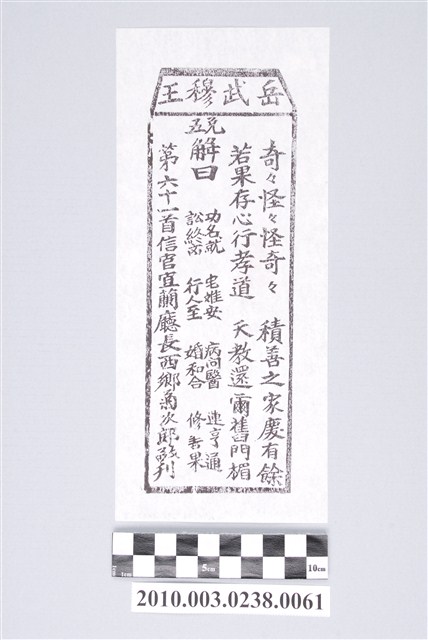 岳武穆王
奇々怪々怪奇々 積善之家慶有餘
若果存心行孝道 天教還爾舊門楣
兌五
解曰
功名就 宅安 病問醫 運亨通
訟終 行人至 婚和合 修善果
第六十一首信官宜蘭廳長西鄉菊次郎敬刊
1cm 5cm 10cm
2010.003.0238.0061